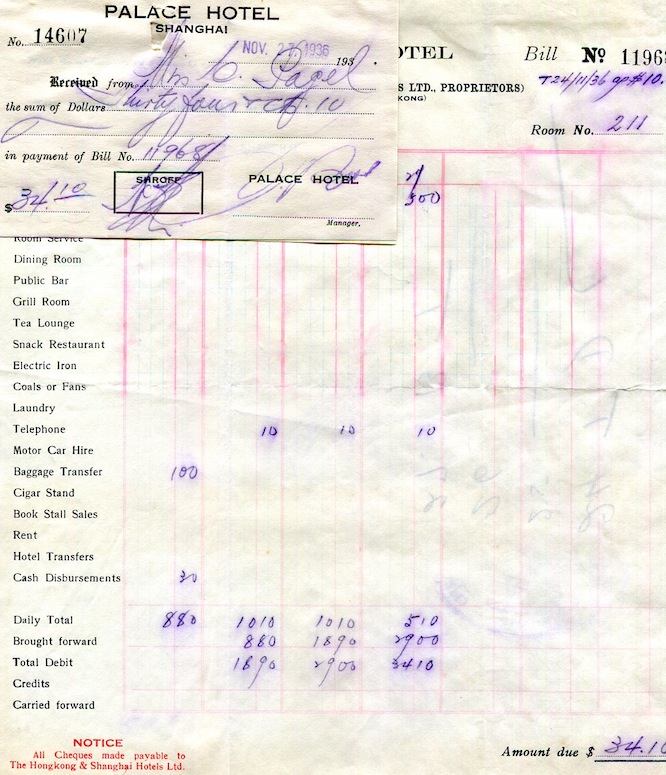 PALACE HOTEL
SHANGHAI
No. 14607
NOV. 27 1936
193 .
Received from Mrs C. Pagel
the sum of Dollars Thirty four & cts. 10
in payment of Bill No. 11968
$ 34.10
SHROFF
PALACE HOTEL
Manager.
OTEL
Bill No 11968
S LTD., PROPRIETORS)
KONG)
T24/11/36 @ $10.
Room No. 211
500
Room Service
Dining Room
Public Bar
Grill Room
Tea Lounge
Snack Restaurant
Electric Iron
Coals or Fans
Laundry
Telephone 10 10 10
Motor Car Hire
Baggage Transfer 100
Cigar Stand
Book Stall Sales
Rent
Hotel Transfers
Cash Disbursements 30
Daily Total 880 1010 1010 510
Brought forward 880 1890 2900
Total Debit 1890 2900 3410
Credits
Carried forward
NOTICE
All Cheques made payable to
The Hongkong & Shanghai Hotels Ltd.
Amount due $ 34.10